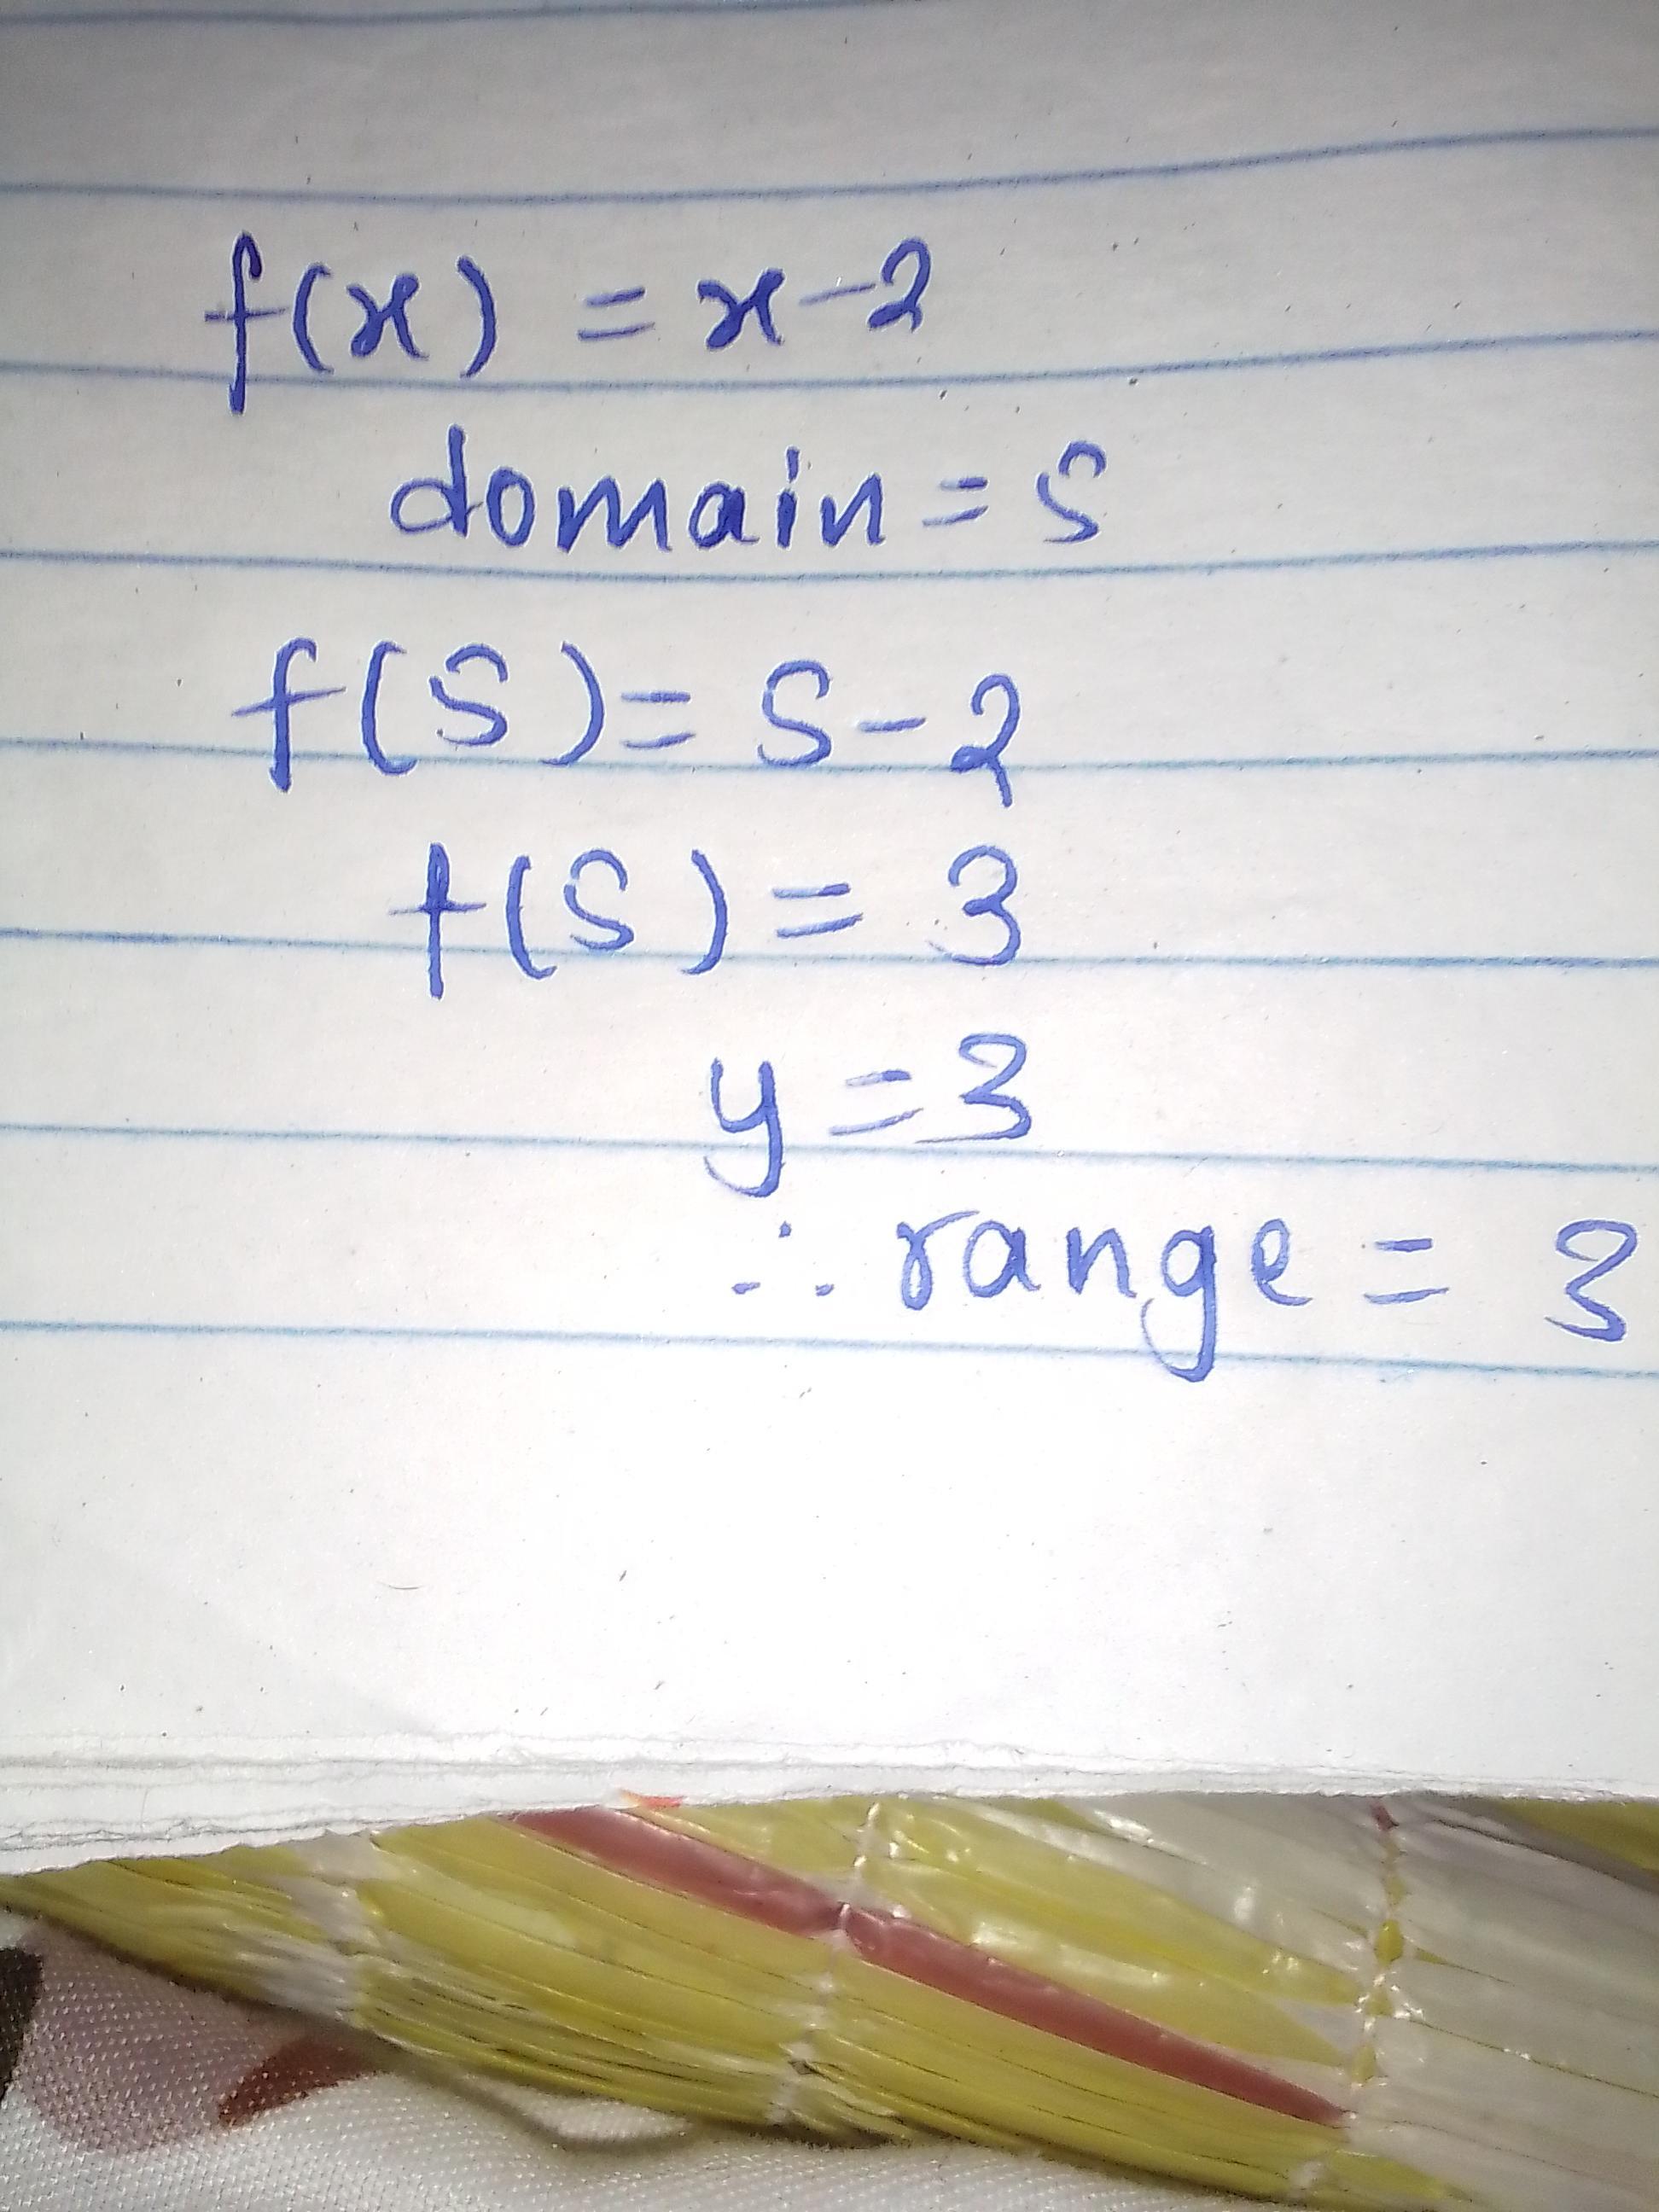 f(x) = x-2
domain = 5
f(5) = 5-2
f(5) = 3
y = 3
∴ range = 3